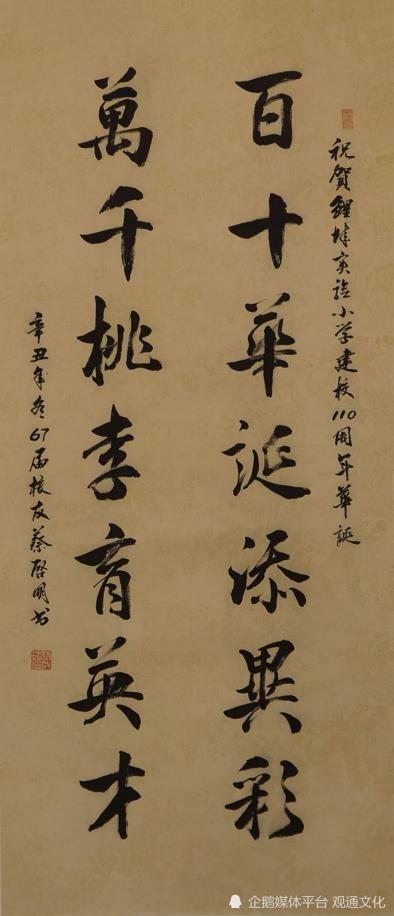 祝賀鯉城实验小学建校110周年華誕
百十華誕添異彩
萬千桃李育英才
辛丑年冬67届校友蔡啓明书
企鹅媒体平台 观通文化